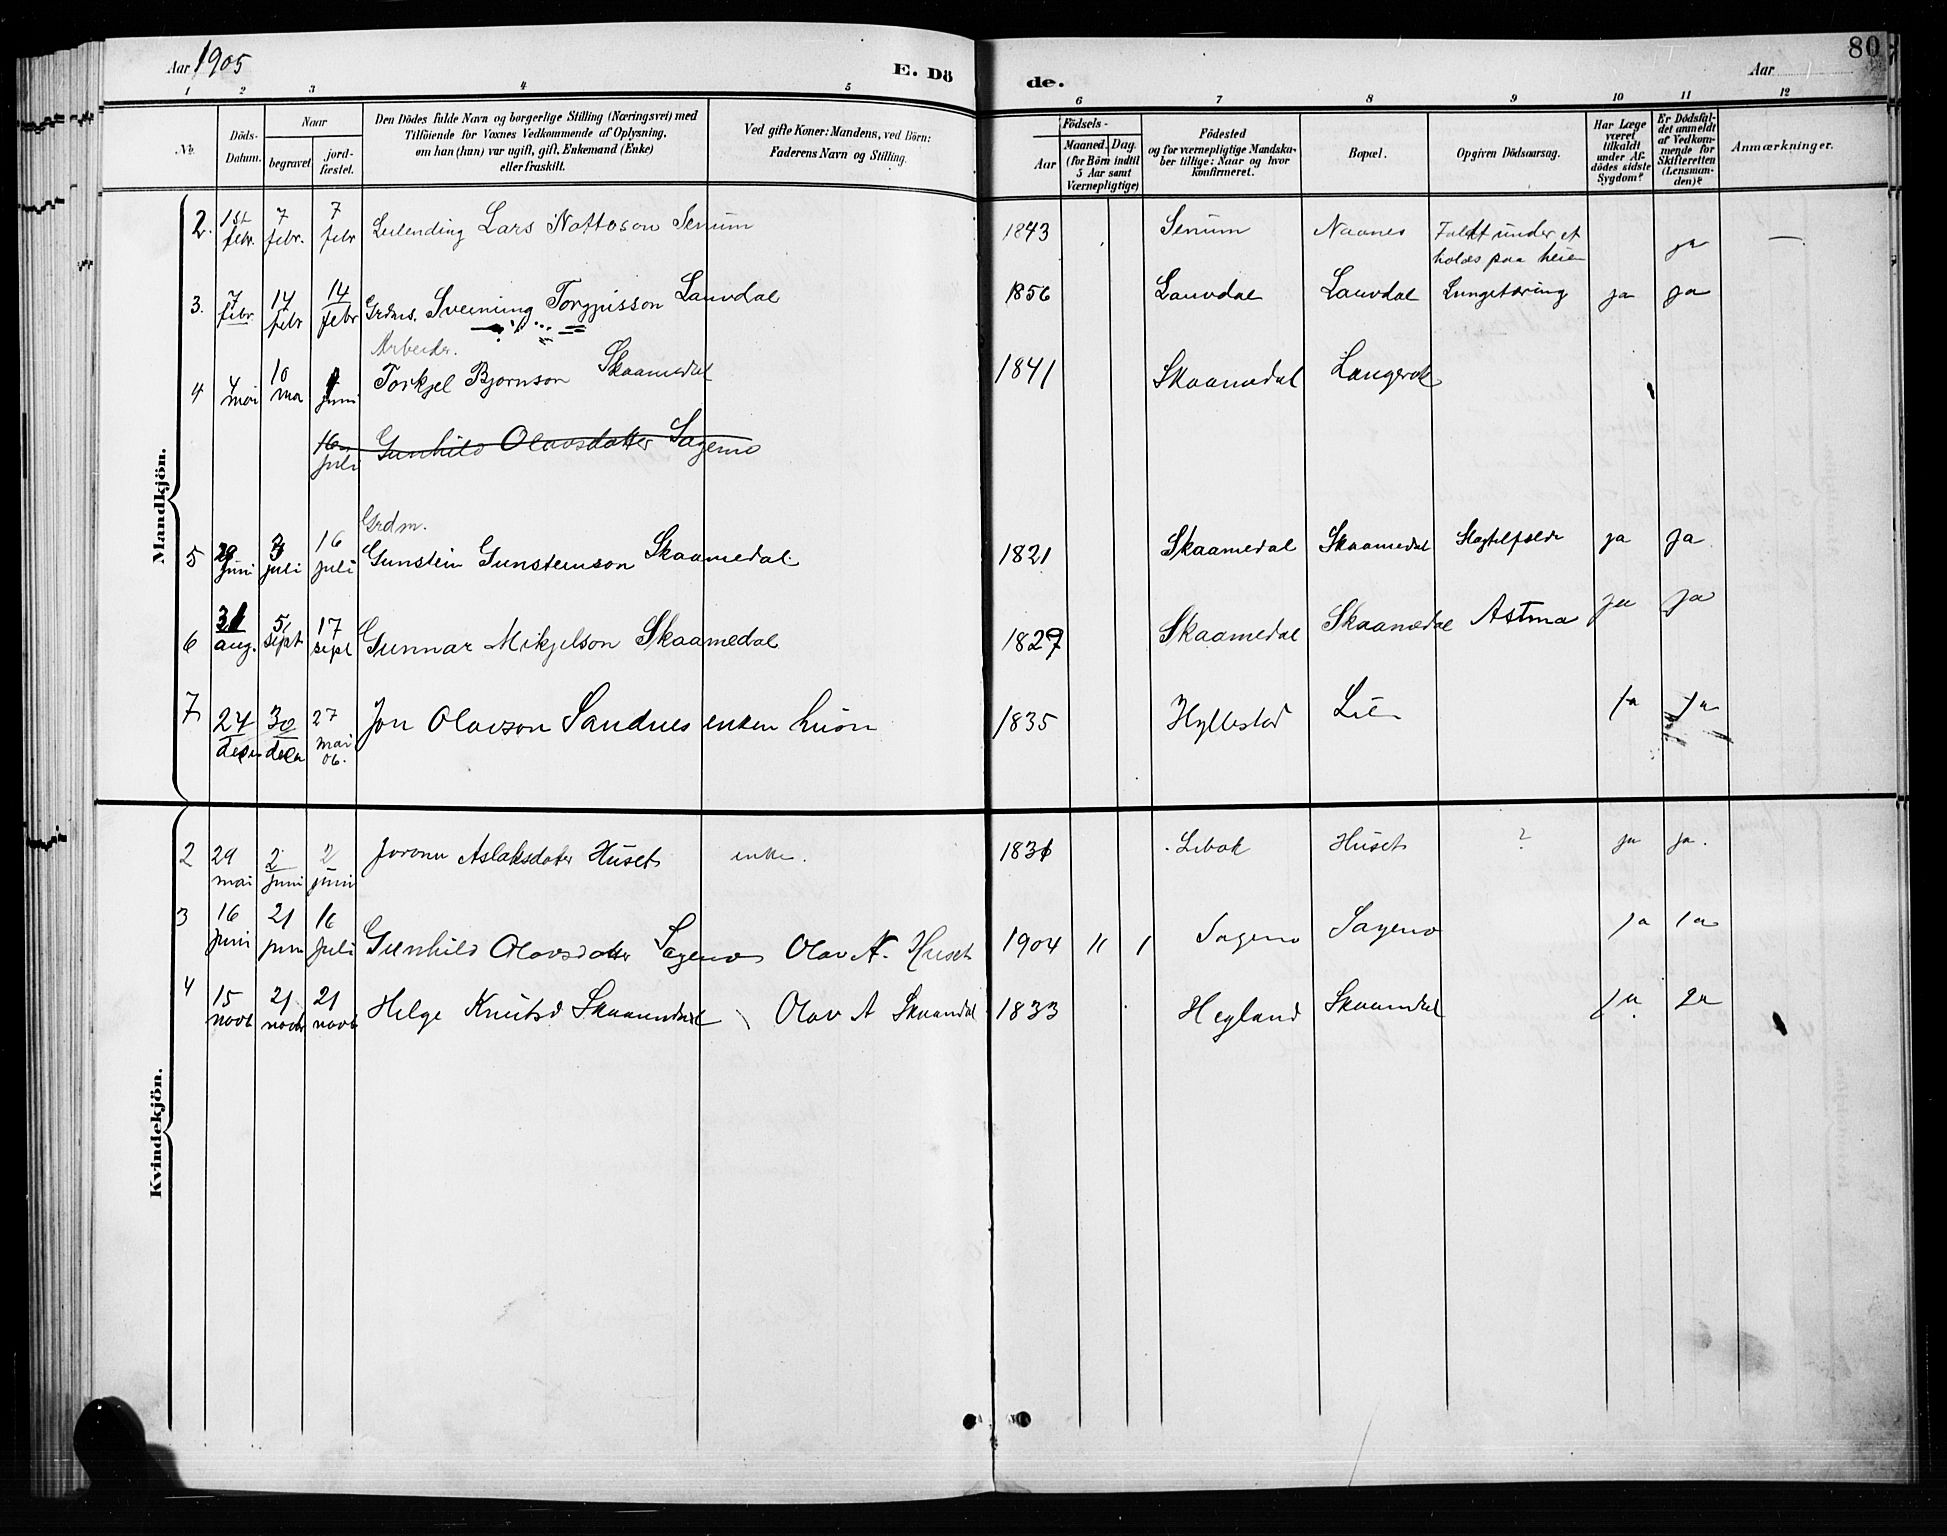 Aar 1905
E. Dö
de.
Aar
80
1 2 3 4 5 6 7 8 9 10 11 12
No.
Döds-Datum.
Naar
begravet.
jord-fæstet.
Den Dödes fulde Navn og borgerlige Stilling (Næringsvei) med
Tilföiende for Voxnes Vedkommende af Oplysning,
om han (hun) var ugift, gift, Enkemand (Enke)
eller fraskilt.
Ved gifte Koner: Mandens, ved Börn:
Faderens Navn og Stilling.
Födsels-
Aar
Maaned. Dag.
(for Börn indtil
5 Aar samt
Værnepligtige)
Födested
og for værnepligtige Mandska-
ber tillige: Naar og hvor
konfirmeret.
Bopæl.
Opgiven Dödsaarsag.
Har Læge
været
tilkaldt
under Af-
dödes sidste
Sygdom?
Er Dödsfal-
det anmeldt
af Vedkom-
mende for
Skifteretten
(Lensman-
den)?
Anmærkninger.
Mandkjön.
2. 1st febr. 7 febr. 7 febr Lars Nottoson Senum 1843 Senum Naanes under et ja —
holds paa heien
3. 7 febr. 14 febr 14 febr Grdms. Sveinung Torgjusson Lauvdal 1856 Lauvdal Lauvdal Lungetæring ja ja
Arbeider.
4 7 mai 10 ma juni Torkjel Bjornson Skaamedal 1841 Skaamedal Langerok
16 juli Gunhild Olavsdatter Sagemo
Grdm.
5 29 juni 3 juli 16 juli Gunstein Gunsteinson Skaamedal 1821 Skaamedal Skaamedal ja ja
6 31 aug. 5 sept 17 sept Gunnar Mikjelson Skaamedal 1829 Skaamedal Skaamedal Astma ja ja
7 27 desem 30 desem 27 mai 06. Jon Olavson Sandnes 1835 Hyllestad Lie ja ja
Kvindekjön.
2 29 mai 2 juni 2 juni Joronn Aslaksdater Huset enke. 1831 Libok Huset ? ja ja.
3 16 juni 21 juni 16 juli Gunhild Olavsdatter Sagemo Olav A. Huset 1904 11 1 Sagemo Sagemo ja ja
4 15 novb 21 novbr 21 novb Helge Knutsd Skaamedal Olav A Skaamdal 1833 Heyland Skaamdal ja ja